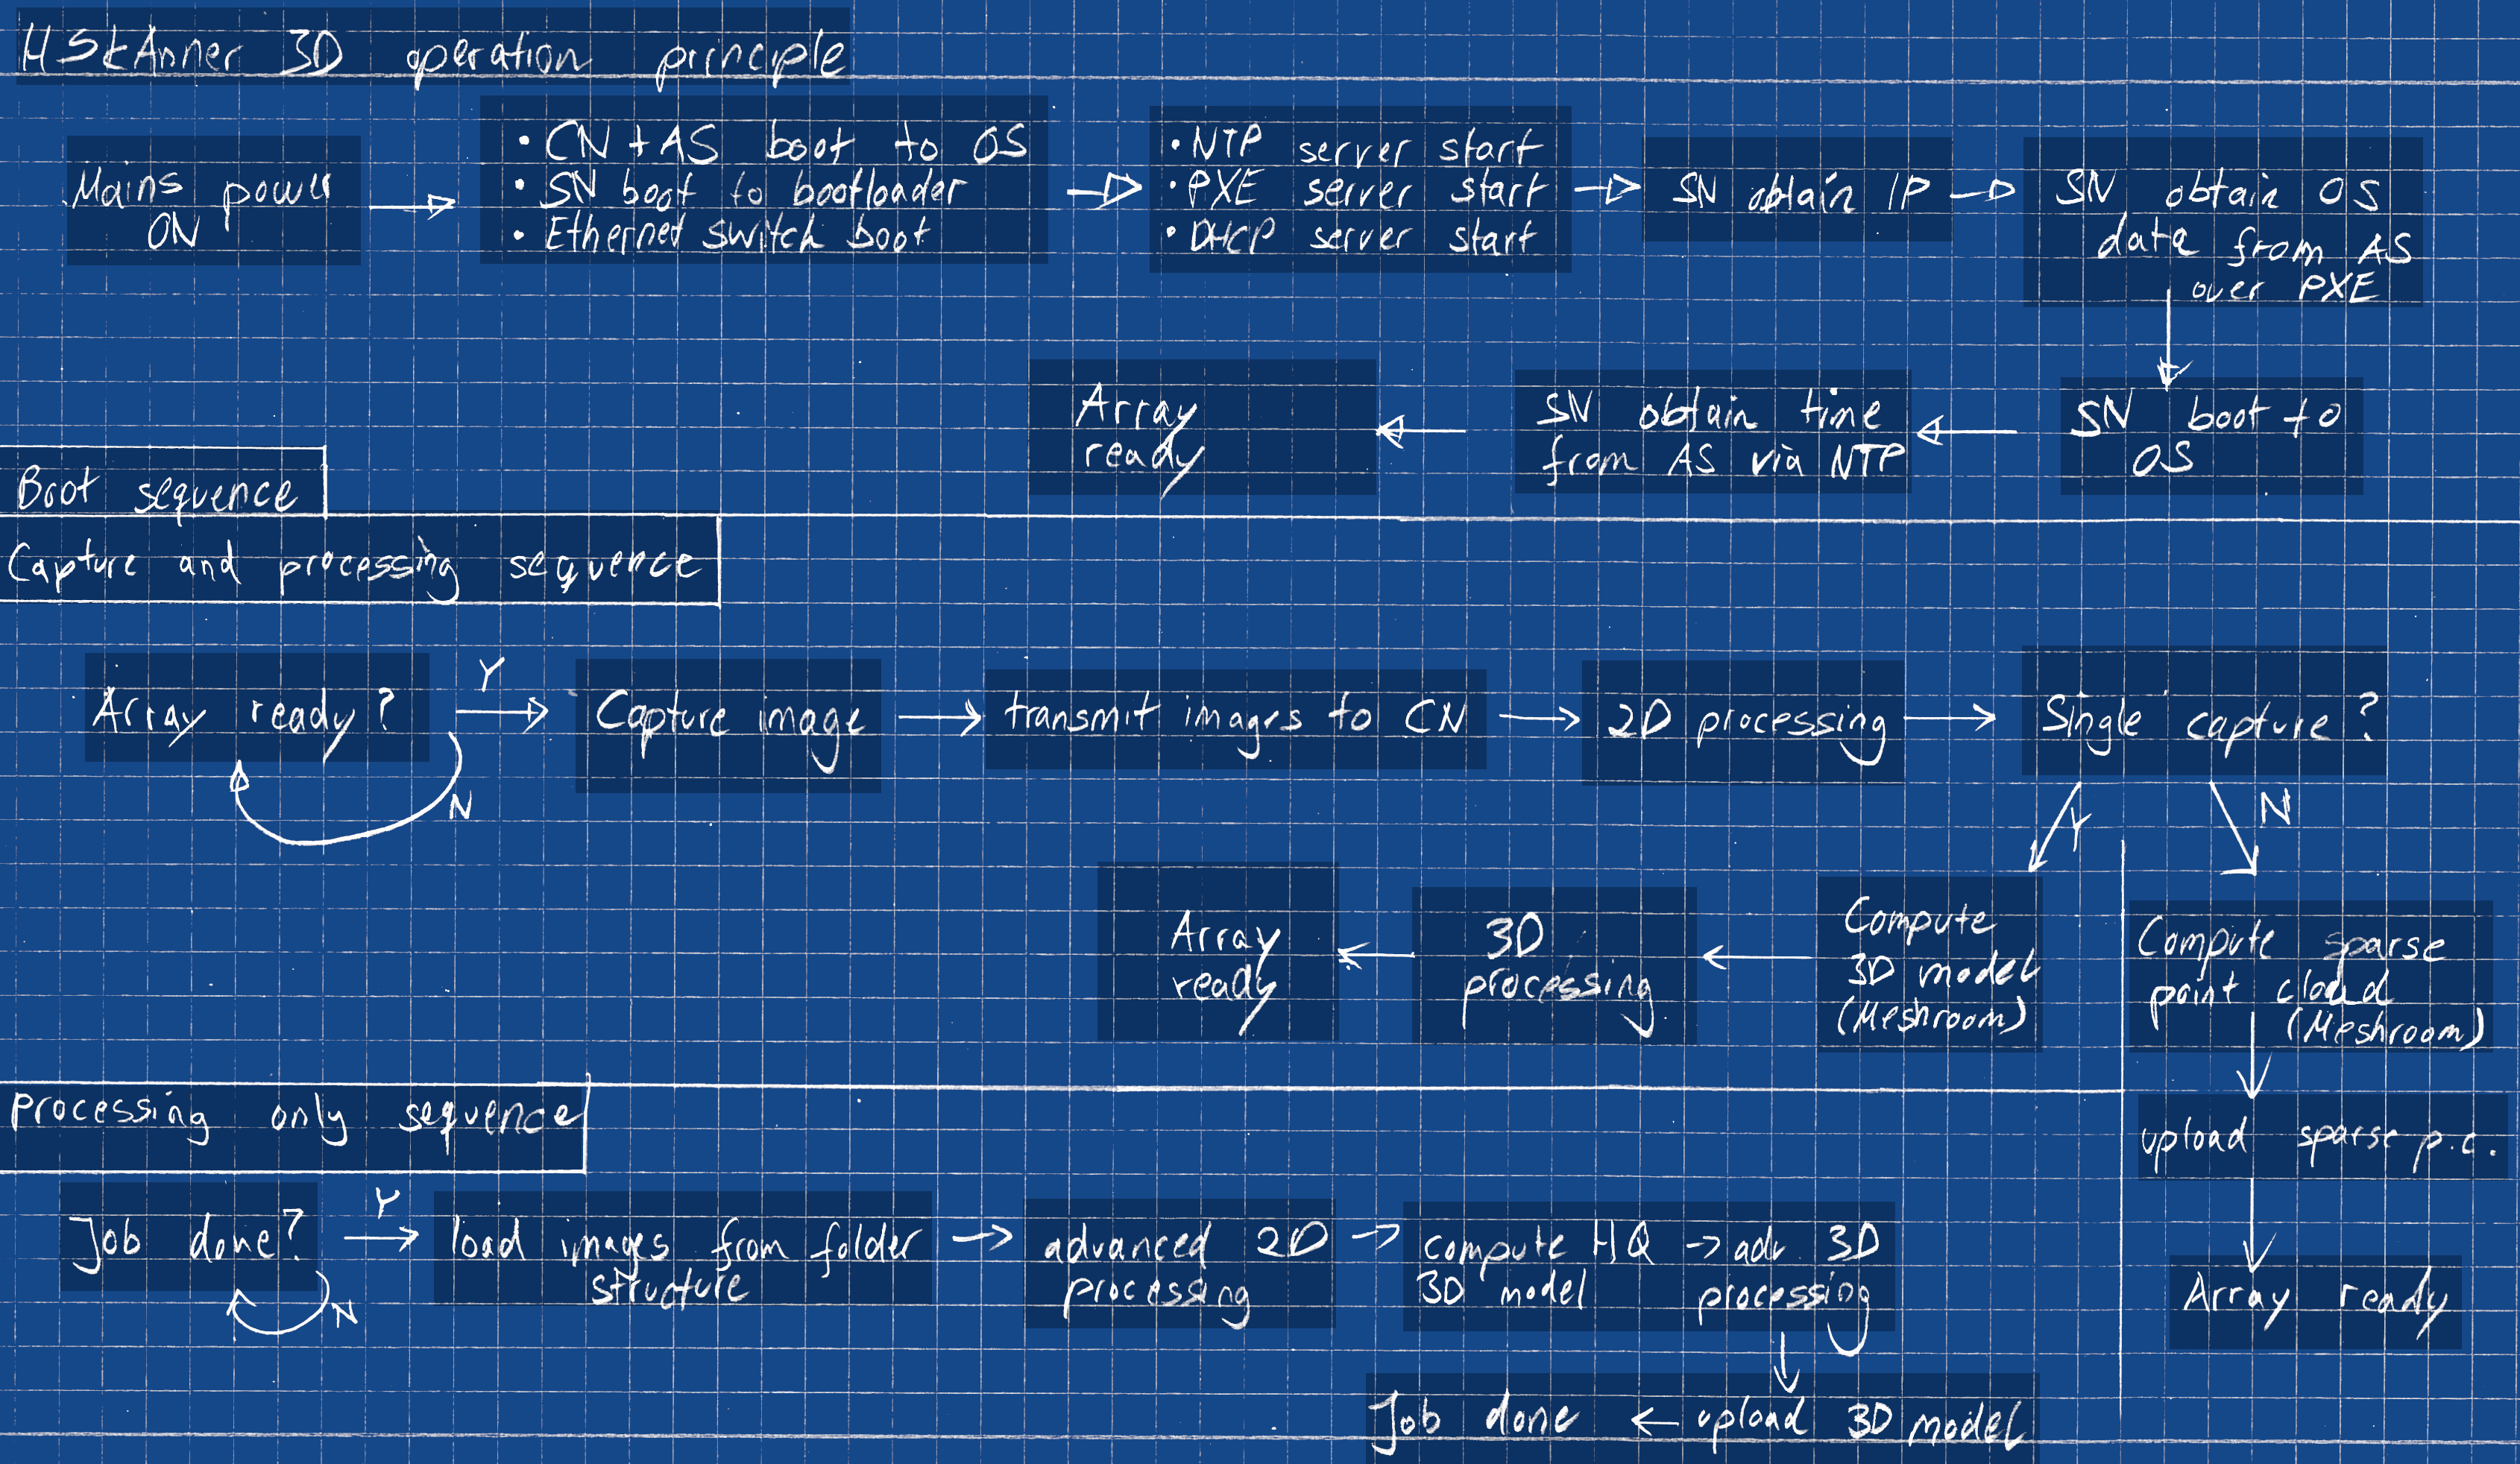 HSkAnner 3D operation principle
Mains power
ON
• CN + AS boot to OS
• SN boot to bootloader
• Ethernet switch boot
• NTP server start
• PXE server start
• DHCP server start
SN obtain IP
SN obtain OS
data from AS
over PXE
SN boot to
OS
SN obtain time
from AS via NTP
Array
ready
Boot sequence
Capture and processing sequence
Array ready?
Y
N
Capture image
transmit images to CN
2D processing
Single capture?
Y
N
Compute
3D model
(Meshroom)
3D
processing
Array
ready
Compute sparse
point cloud
(Meshroom)
upload sparse p.c.
Array ready
processing only sequence
Job done?
Y
N
load images from folder
structure
advanced 2D
processing
compute HQ
3D model
adv. 3D
processing
upload 3D model
Job done